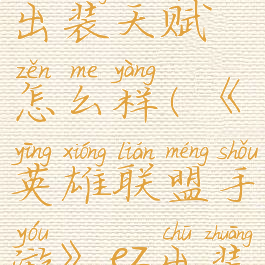 出装天赋
zěn me yàng
怎么样(《
yīng xióng lián méng shǒu
英雄联盟手
yóu chū zhuāng
游》ez出装